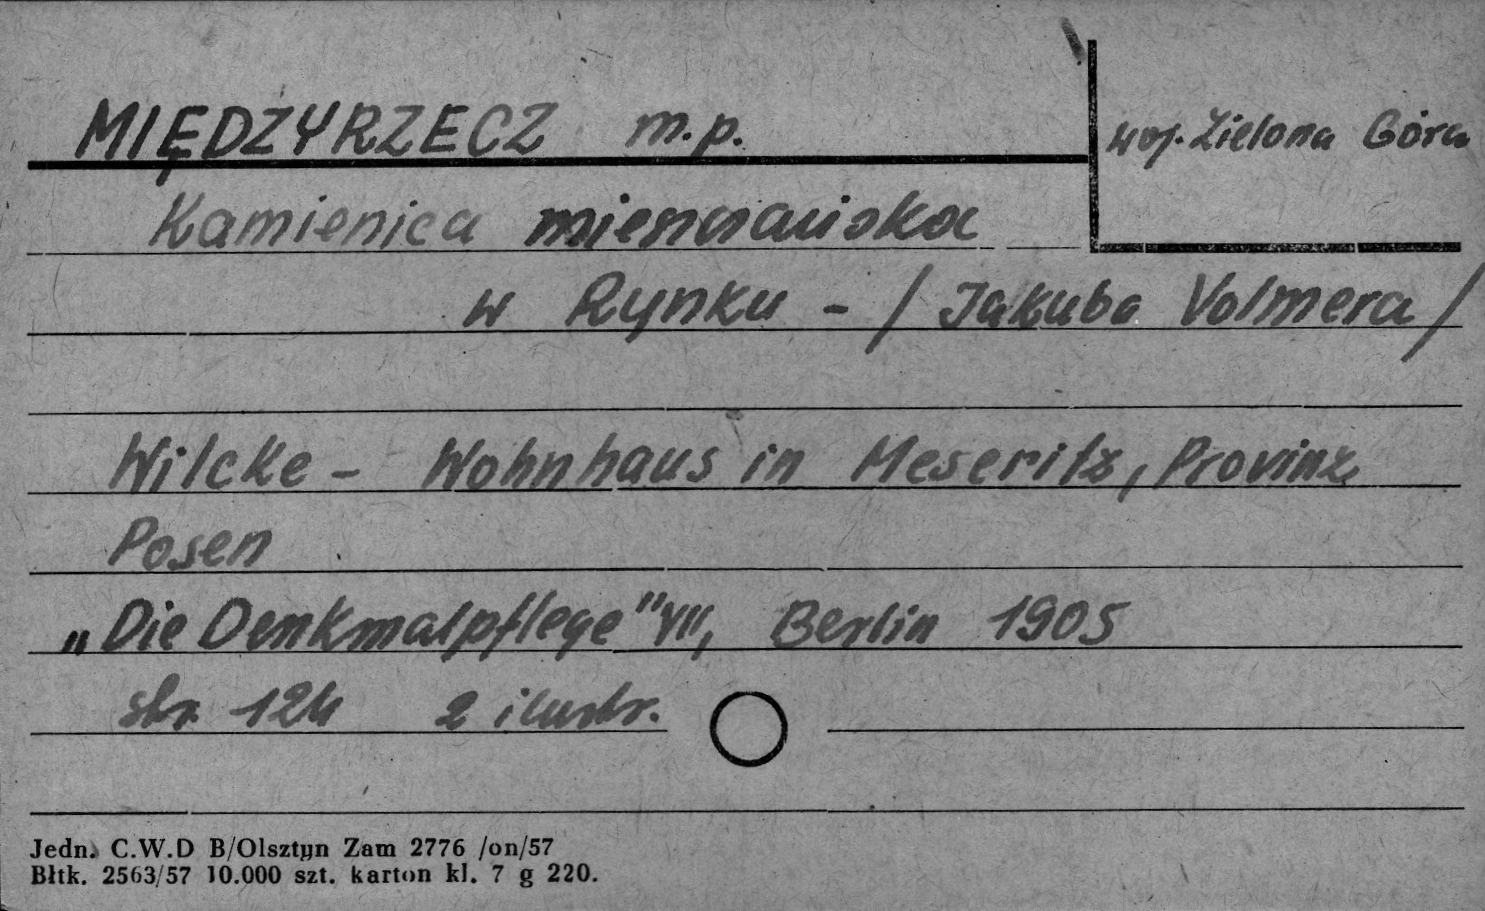 MIĘDZYRZECZ m.p.
woj. Zielona Góra
Kamienica mieszczańska
w Rynku - / Jakuba Volmera /
Wilcke - Wohnhaus in Meseritz, Provinz
Posen
„Die Denkmalpflege" VII, Berlin 1905
str. 124 2 ilustr.
Jedn. C.W.D B/Olsztyn Zam 2776 /on/57
Błtk. 2563/57 10.000 szt. karton kl. 7 g 220.